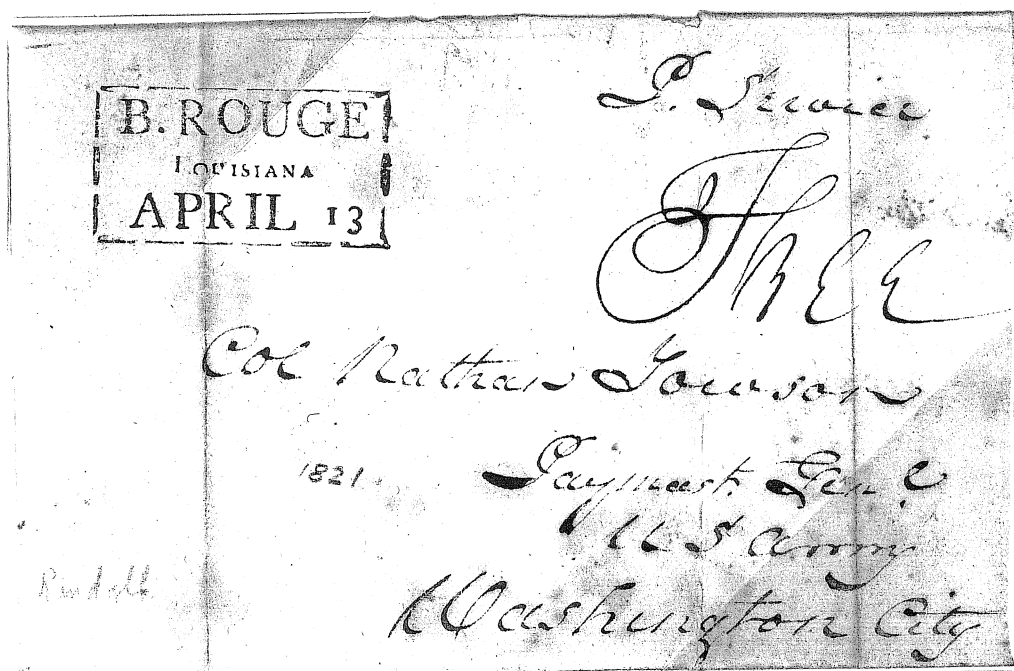 B. ROUGE
LOUISIANA
APRIL 13
P. Service
Free
Col Nathan Towson
1821
Paymast. Gen.l
U S Army
Washington City